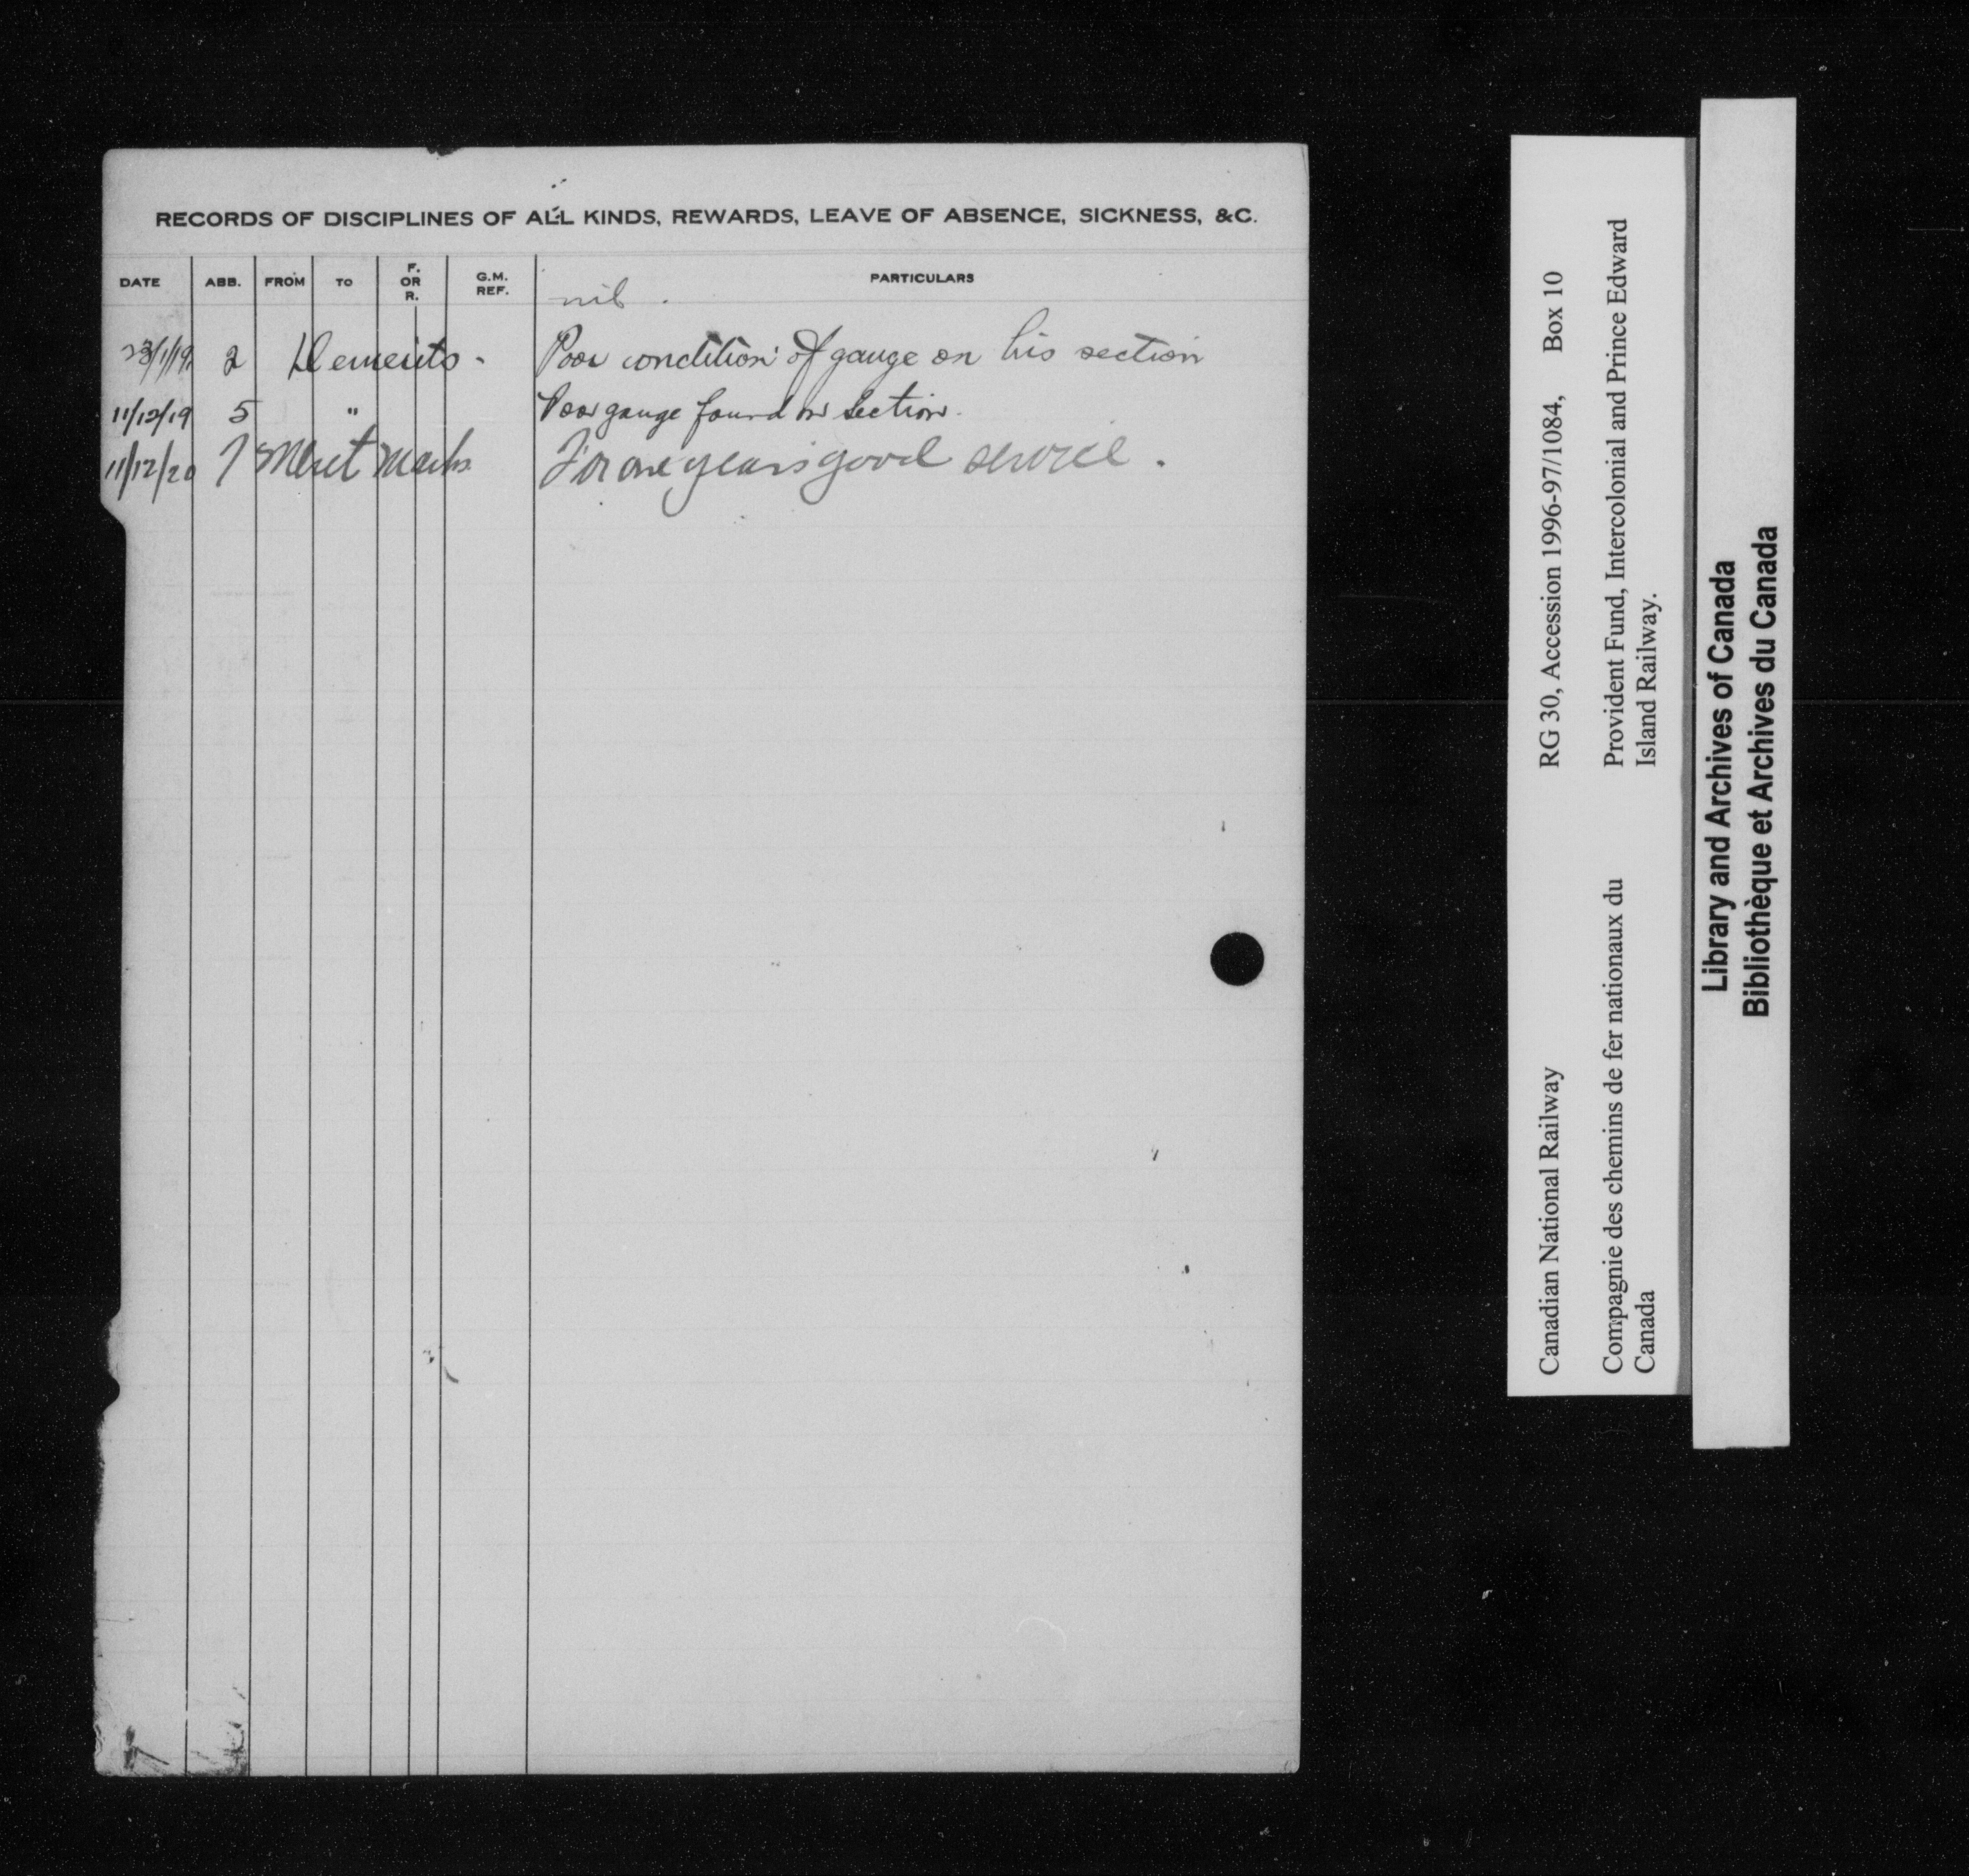 RECORDS OF DISCIPLINES OF ALL KINDS, REWARDS, LEAVE OF ABSENCE, SICKNESS, &C.
DATE ABB. FROM TO F. OR R. G.M. REF. PARTICULARS
nil .
23/1/19 2 Demerits - Poor condition of gauge on his section
11/12/19 5 " Poor gauge found on Section.
11/12/20 7 Merit Marks For one years good service .
Canadian National Railway RG 30, Accession 1996-97/1084, Box 10
Compagnie des chemins de fer nationaux du Provident Fund, Intercolonial and Prince Edward
Canada Island Railway.
Library and Archives of Canada
Bibliothèque et Archives du Canada